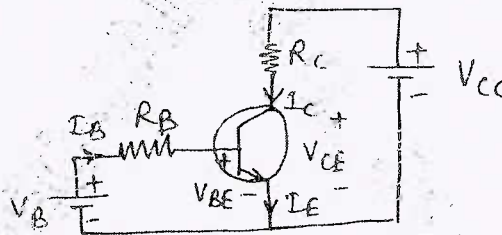 R_C
+
V_CC
-
I_C
+
V_CE
-
I_B
R_B
+
V_BE -
I_E
V_B
+
-